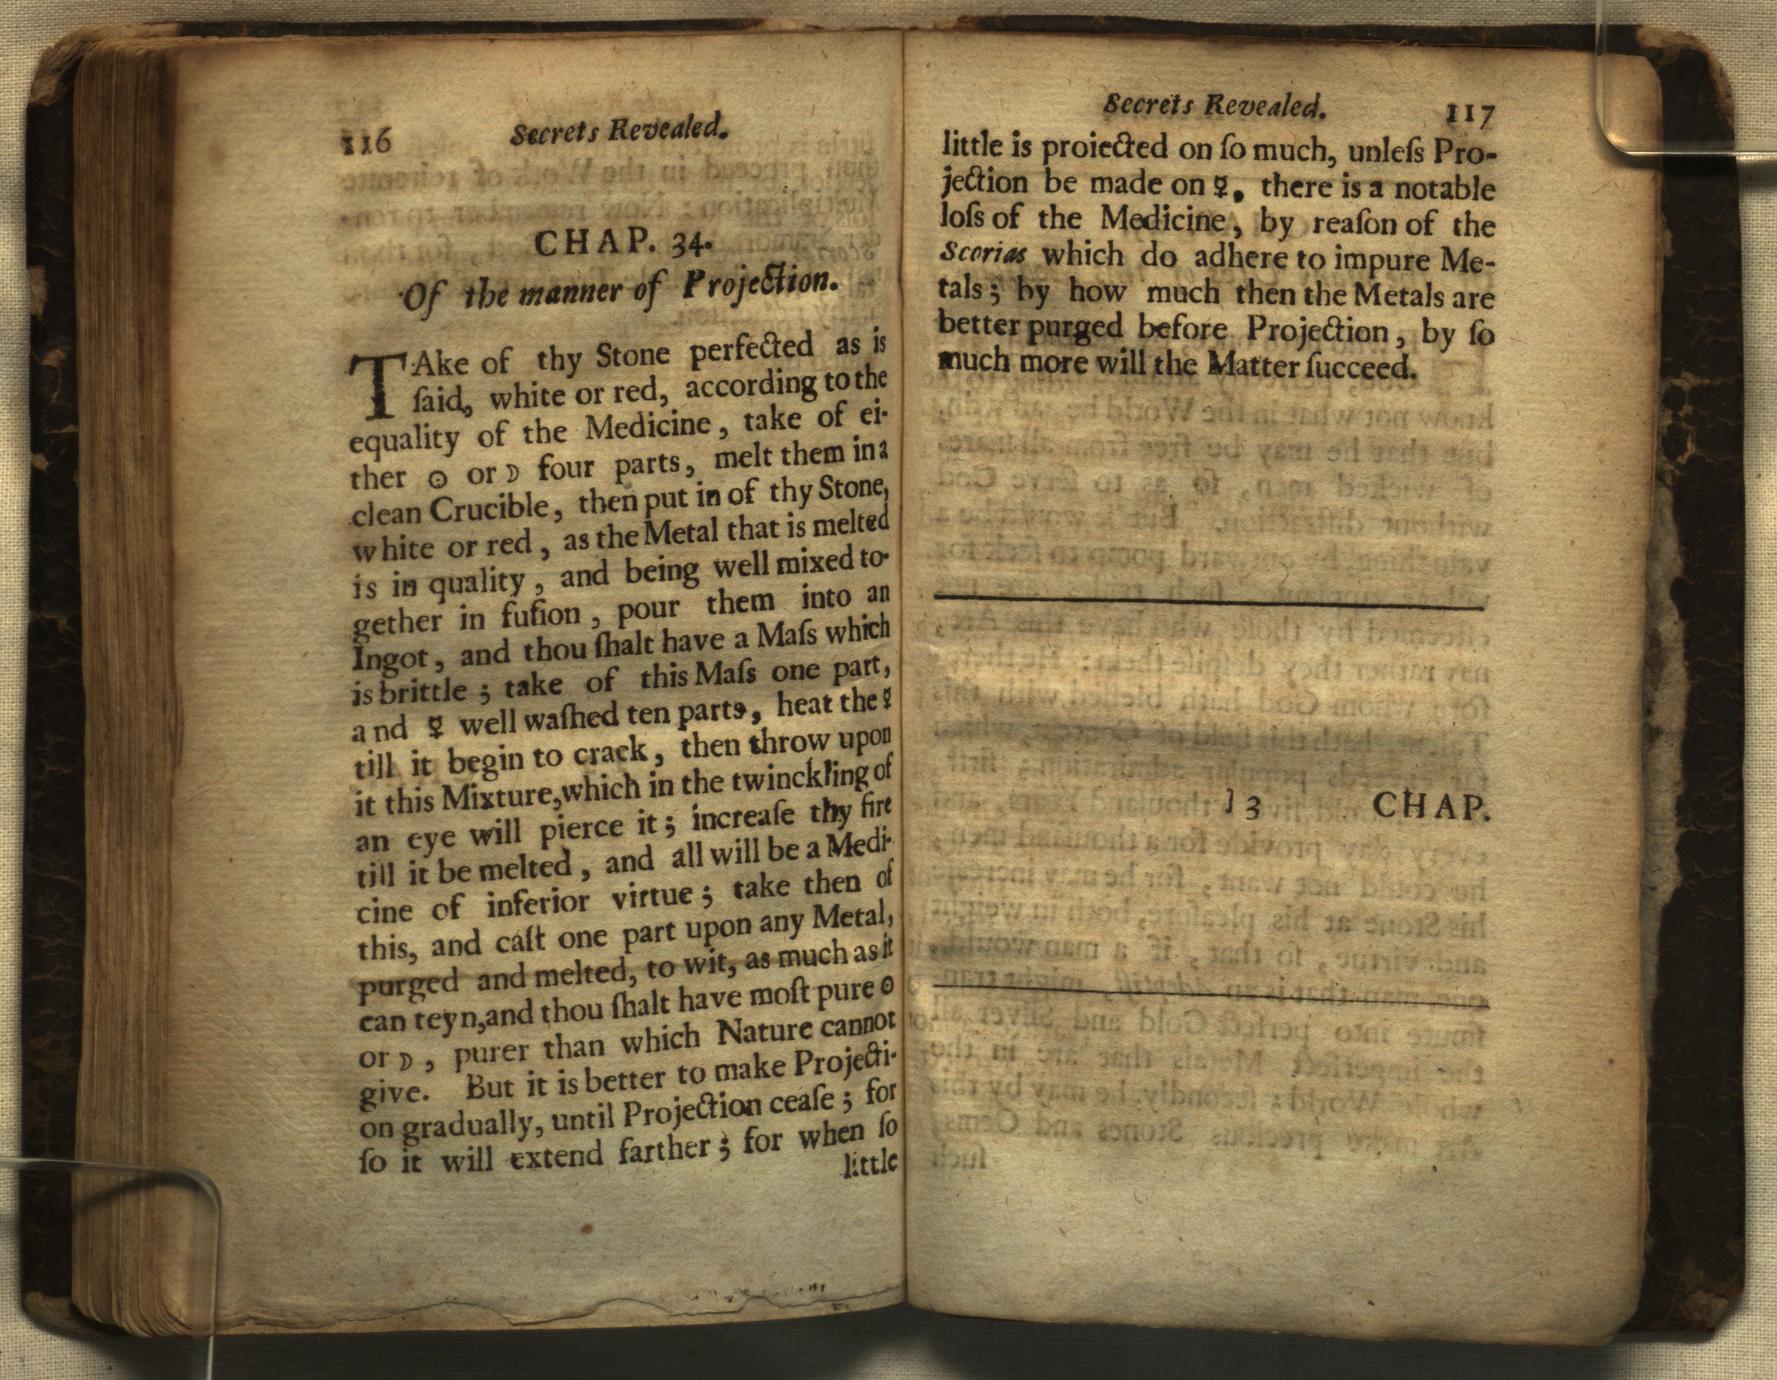 116 Secrets Revealed.
CHAP. 34.
Of the manner of Projection.
TAke of thy Stone perfected as is
ſaid, white or red, according to the
equality of the Medicine, take of ei-
ther ☉ or ☽ four parts, melt them in a
clean Crucible, then put in of thy Stone,
white or red, as the Metal that is melted
is in quality, and being well mixed to-
gether in fuſion, pour them into an
Ingot, and thou ſhalt have a Maſs which
is brittle; take of this Maſs one part,
and ☿ well waſhed ten parts, heat the ☿
till it begin to crack, then throw upon
it this Mixture, which in the twinckling of
an eye will pierce it; increaſe thy fire
till it be melted, and all will be a Medi-
cine of inferior virtue; take then of
this, and caſt one part upon any Metal,
purged and melted, to wit, as much as it
can teyn, and thou ſhalt have moſt pure ☉
or ☽, purer than which Nature cannot
give. But it is better to make Projecti-
on gradually, until Projection ceaſe; for
ſo it will extend farther; for when ſo
little
Secrets Revealed. 117
little is proiected on ſo much, unleſs Pro-
jection be made on ☿, there is a notable
loſs of the Medicine, by reaſon of the
Scorias which do adhere to impure Me-
tals; by how much then the Metals are
better purged before Projection, by ſo
much more will the Matter ſucceed.
I3 CHAP.